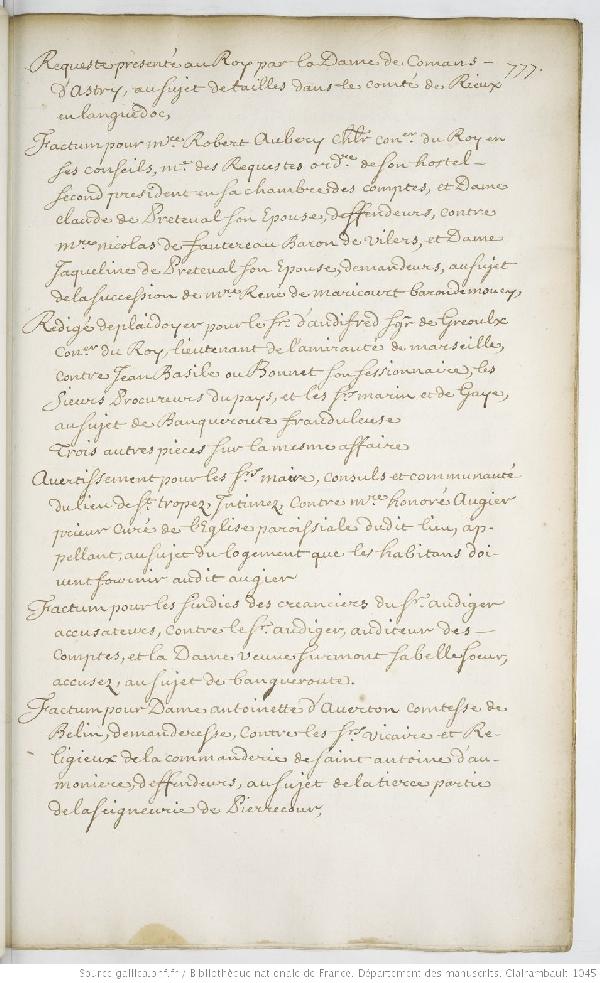 777.
Requeste presenté au Roy par la Dame de Comans
d'Astry, au sujet de tailles dans le comté de Rieux
en languedoc,
Factum pour mre. Robert Aubery chlr. coner. du Roy en
ses conseils, me. des Requestes ordre. de son hostel
second president en sa chambre des comptes, et Dame
claude de Preteval son Epouse, deffendeurs, contre
mre. nicolas de fautereau Baron de Vilers, et Dame
Jaqueline de Preteval son Epouse, demandeurs, au sujet
de la succession de mre. René de maricourt baron de mouy,
Redigé de plaidoyer pour le sr. d'audifred sgr. de Greoulx
coner. du Roy, lieutenant de l'amirauté de marseille,
contre Jean Basile ou Bonnet son sessionnaire, les
sieurs Procureurs du pays, et les srs. marin et de Gaye,
au sujet de Banqueroute frauduleuse
Trois autres pieces sur la mesme affaire
Avertissement pour les srs. maire, consuls et communauté
du lieu de st. tropez, Intimez, contre mre. honoré Augier
prieur curé de l'Eglise paroissiale dudit lieu, ap-
pellant, au sujet du logement que les habitans doi-
vent fournir audit augier
Factum pour les sindics des creanciers du sr. audiger
accusateurs, contre le sr. audiger, auditeur des
comptes, et la Dame veuve surmont sa belle soeur,
accusez, au sujet de banqueroute.
Factum pour Dame antoinette d'Averton comtesse de
Belin, demanderesse, contre les srs. vicaire et Re-
ligieux de la commanderie de saint antoine d'au-
moniere, deffendeurs, au sujet de la tierce partie
de la seigneurie de Pierrecour,
Source gallica.bnf.fr / Bibliothèque nationale de France. Département des manuscrits. Clairambault 1045